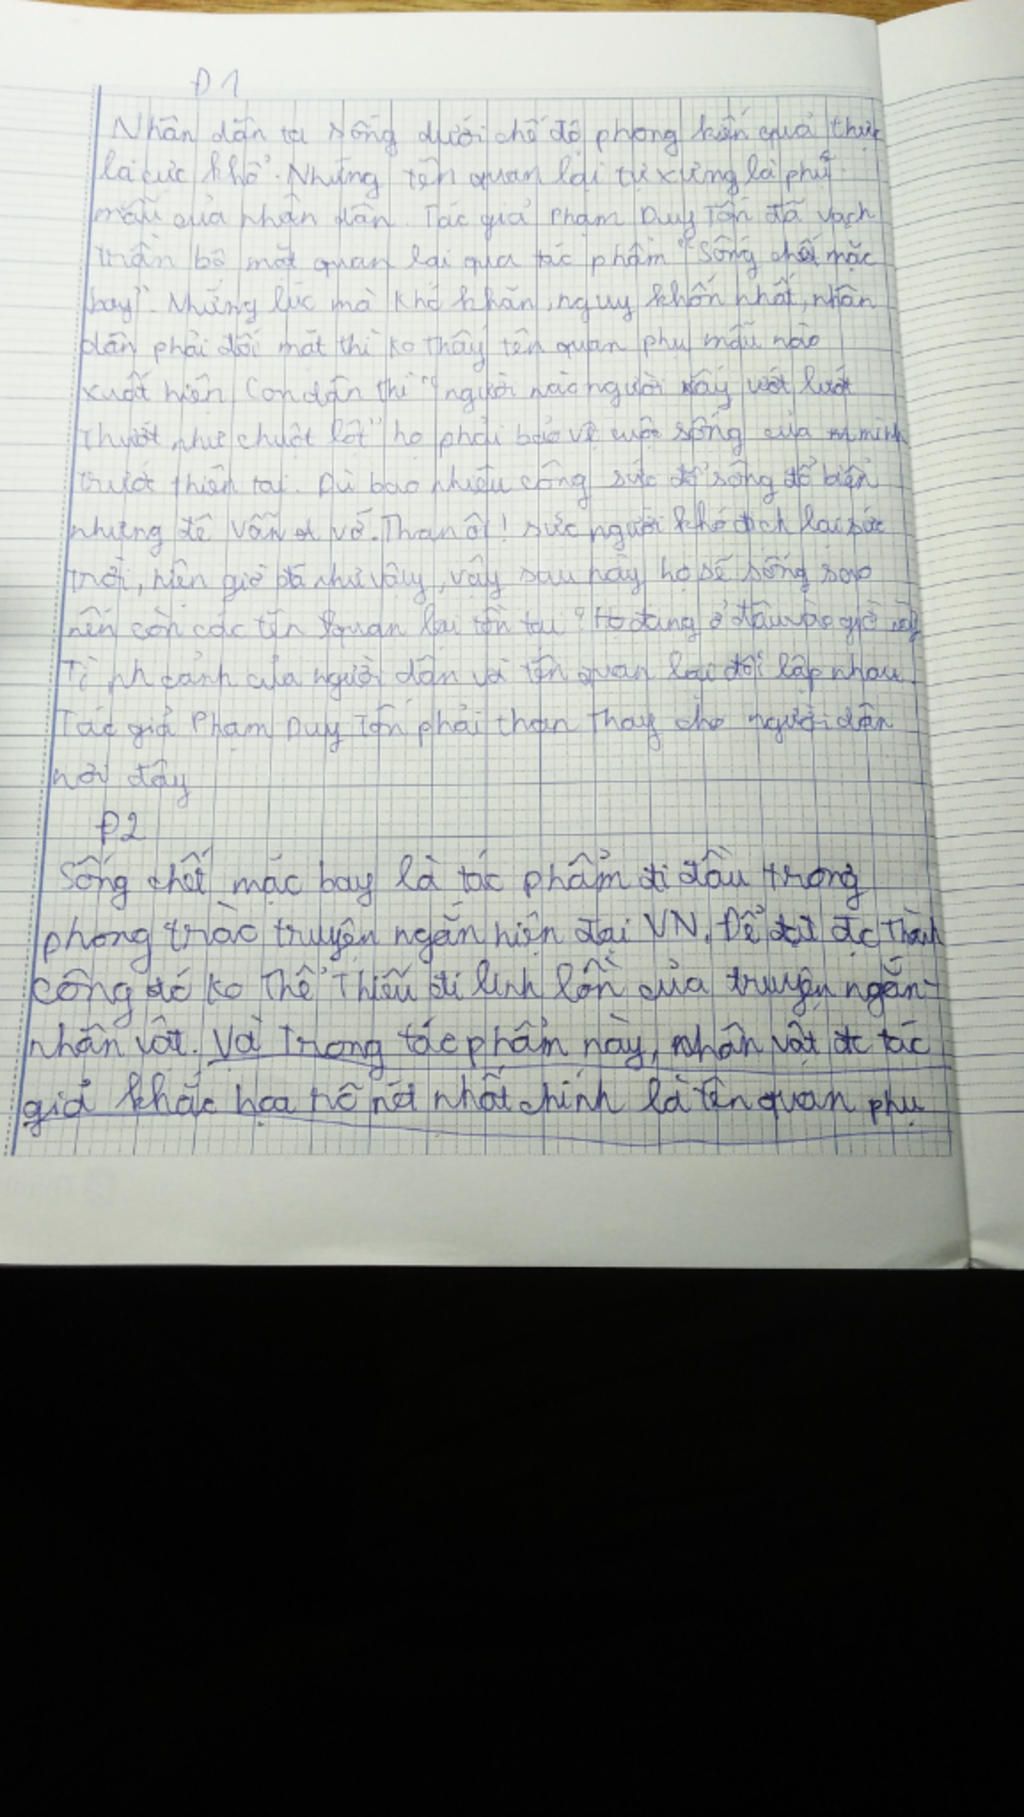 Đ1
Nhân dân ta sống dưới chế độ phong kiến quả thực
là cực khổ. Những tên quan lại tự xưng là phụ
mẫu của nhân dân. Tác giả Phạm Duy Tốn đã vạch
trần bộ mặt quan lại qua tác phẩm "Sống chết mặc
bay". Những lúc mà khó khăn, nguy khốn nhất, nhân
dân phải đối mặt thì ko thấy tên quan phụ mẫu nào
xuất hiện. Con dân thì "người nào người nấy ướt lướt
thướt như chuột lột" họ phải bảo vệ cuộc sống của mình
trước thiên tai. Dù bao nhiêu công sức đổ sông đổ biển
nhưng đê vẫn vỡ. Than ôi! sức người khó địch lại sức
trời, hiện giờ đã như vậy, vậy sau này họ sẽ sống sao
nên còn các tên quan lại tồn tại? Họ đang ở đâu vào giờ
Tình cảnh của người dân và tên quan lại đối lập nhau.
Tác giả Phạm Duy Tốn phải than thay cho người dân
nơi đây
Đ2
Sống chết mặc bay là tác phẩm đi đầu trong
phong trào truyện ngắn hiện đại VN. Để đạt đc thành
công đó ko thể thiếu đi linh hồn của truyện ngắn-
nhân vật. Và trong tác phẩm này, nhân vật đc tác
giả khắc họa rõ nét nhất chính là tên quan phụ